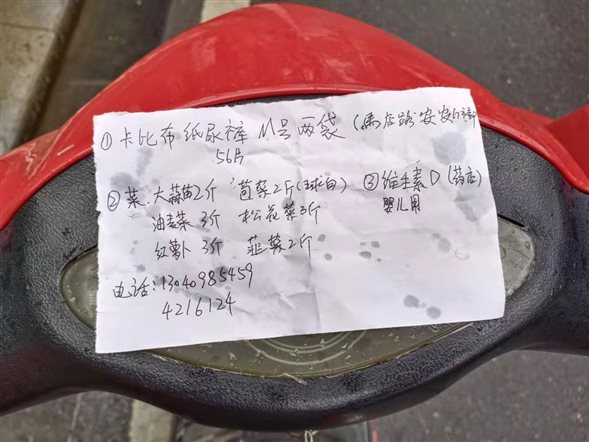 ① 卡比布纸尿裤 M号 两袋 (馬庄路安良
56片
② 菜:大蒜苗2斤 茴菜2斤(球白) ③ 维生素D (药店)
油麦菜 3斤 松花菜3斤 婴儿用
红萝卜 3斤 韭菜2斤
电话:13040985459
4216124